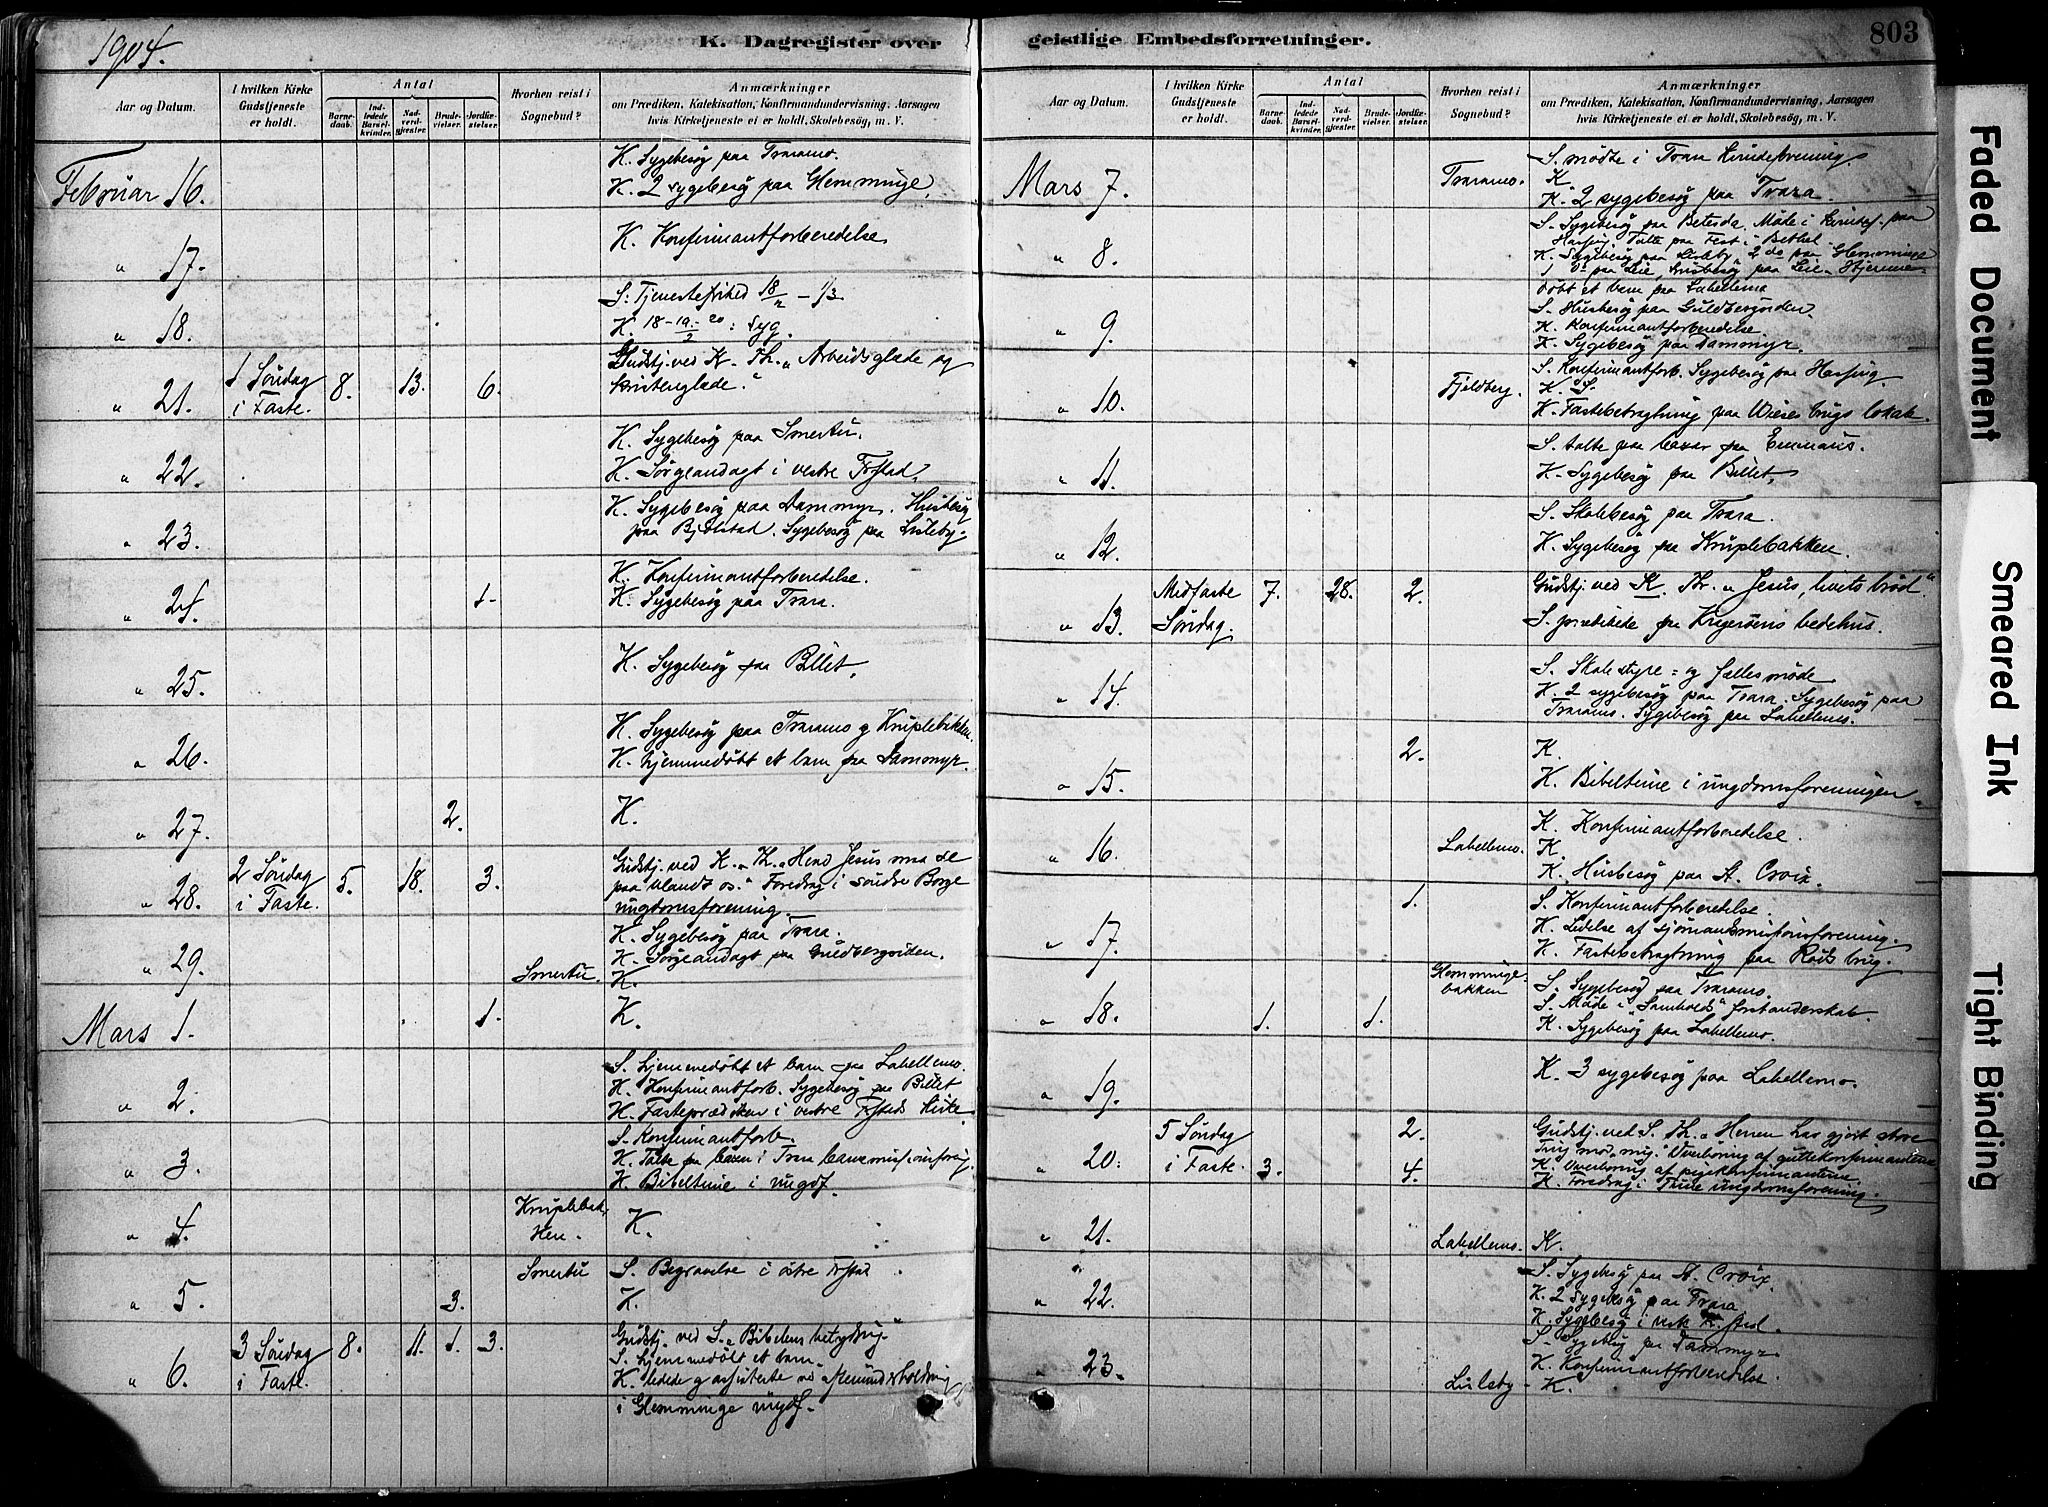 1904.
K. Dagregister over
Aar og Datum.
I hvilken Kirke Gudstjeneste er holdt.
Antal
Barnedaab.
Indledede Barselkvinder.
Nadverdgjester.
Brudevielser.
Jordfæstelser.
Hvorhen reist i Sognebud?
Anmærkninger
om Prædiken, Katekisation, Konfirmandundervisning, Aarsagen
hvis Kirketjeneste ei er holdt, Skolebesøg, m. V.
Februar 16.
K. Sygebesøg paa Traramo.
K. 2 sygebesøg paa Glemminge.
" 17.
K. Konfirmantforberedelse
" 18.
S: Tjenestefrihed 18/2 – 1/3
K. 18-19-20/2: Syg.
" 21. 1 Søndag i Faste. 8. 13. 6.
Gudstj. ved K. Th. „Arbeidsglæde og
kristenglæde."
" 22.
K. Sygebesøg paa Smertu.
K. Sørgeandagt i vestre Frstad.
" 23.
K. Sygebesøg paa Dammyr. Husbesøg
paa Bjølstad. Sygebesøg paa Lisleby.
" 24. 1.
K. Konfirmantforberedelse.
K. Sygebesøg paa Trara.
" 25.
K. Sygebesøg paa Billet.
" 26.
K. Sygebesøg paa Traramo og Kniplebakken.
K. hjemmedøbt et barn fra Dammyr.
" 27. 2.
K.
" 28. 2 Søndag i Faste. 5. 18. 3.
Gudstj. ved K. Th. „Hvad Jesus maa se
paa iblandt os." Foredrag i søndre Borge
ungdomsforening.
" 29.
K. Sygebesøg paa Trara.
K. Sørgeandagt paa Guldbergsiden.
Smertu. K.
Mars 1. 1.
K.
" 2.
S. hjemmedøbt et barn fra Labellemo.
K. Konfirmantforb. Sygebesøg paa Billet
K. Fasteprædiken i vestre Frsteds kirke.
" 3.
S. Konfirmantforb.
K. Talte paa basar i Trara
K. Bibeltime i ungdf.
" 4. Kniplebakken.
K.
" 5. 3. Smertu
S. Begravelse i østre Frstad
K.
" 6. 3 Søndag i Faste. 8. 11. 1. 3.
Gudstj. ved S. „Bibelens betydning."
S. hjemmedøbt et barn.
K. ledede og assisterte ved aftenunderholdning
i Glemminge ungdf.
geistlige Embedsforretninger.
803
Aar og Datum.
I hvilken Kirke Gudstjeneste er holdt.
Antal
Barnedaab.
Indledede Barselkvinder.
Nadverdgjester.
Brudevielser.
Jordfæstelser.
Hvorhen reist i Sognebud?
Anmærkninger
om Prædiken, Katekisation, Konfirmandundervisning, Aarsagen
hvis Kirketjeneste ei er holdt, Skolebesøg, m. V.
Mars 7. Traramo.
S. møtte i Trara kvindeforening
K.
K. 2 sygebesøg paa Trara.
" 8.
S. Sygebesøg paa Betesda. Møde i kvindef. paa
Hassing. Talte paa Fest i Bethel.
K. Sygebesøg paa Lisleby. 2 do paa Glemminge
1 do paa Leie, husbesøg paa Leie. Hjemme-
døbt et barn paa Labellemo
" 9.
S. Husbesøg paa Guldbergsiden
K. Konfirmantforberedelse.
K. Sygebesøg paa Dammyr.
" 10. Fjeldberg.
S. Konfirmantforb. Sygebesøg paa Hassing.
K. S.
K. Fastebetragtning paa Wieses brugs lokale.
" 11.
S. talte paa basar paa Emmaus.
K. Sygebesøg paa Billet.
" 12.
S. Skolebesøg paa Trara.
K. Sygebesøg paa Kniplebakken.
" 13. Midfaste Søndag. 7. 28. 2.
Gudstj. ved K. Th. „Jesus, livets brød."
S. prædikede paa Krigerøens bedehus.
" 14.
S. Skolestyre= og fællesmøde
K. 2 sygebesøg paa Trara. Sygebesøg paa
Traramo. Sygebesøg paa Labellemo.
" 15. 2.
K.
K. Bibeltime i ungdomsforeningen.
" 16. Labellemo.
K. Konfirmantforberedelse.
K.
K. Husbesøg paa St. Croix.
" 17. 1.
S. Konfirmantforberedelse.
K. Ledelse af Sjømandsmissionsforening.
K. Fastebetragtning paa Røds brug.
" 18. 1. 1. Glemminge-
bakken
S. Sygebesøg paa Traramo.
S. Møde i „Samholds" forstanderskab.
K. Sygebesøg paa Labellemo.
" 19.
K. 3 sygebesøg paa Labellemo.
" 20. 5 Søndag i Faste. 3. 2. 4.
Gudstj. ved S. Th. „Herren har gjort store
Ting mod mig." Overhøring af guttekonfirmanterne
K. Overhøring af pigekonfirmanterne.
K. Foredrag i Tune ungdomsforening.
" 21. Labellemo.
K.
" 22.
S. Sygebesøg paa St. Croix.
K. 2 Sygebesøg paa Trara.
K. Sygebesøg i vestre Frsted.
" 23. Lisleby
S. Sygebesøg paa Dammyr
K. Konfirmantforberedelse.
K.
Faded Document
Smeared Ink
Tight Binding